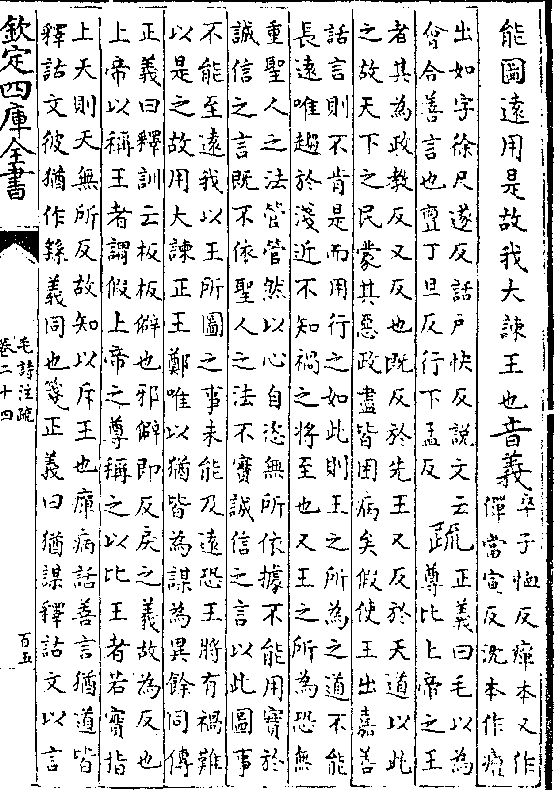 能圖遠用是故我大諫王也音義
卒子恤反癉本又作
僤當亶反沈本作瘨
出如字徐尺遂反話户快反説文云
㑹合善言也亶丁旦反行下孟反
疏
正義曰毛以為
尊比上帝之王
者其為政教反又反也既反於先王又反於天道以此
之故天下之民蒙其惡政盡皆困病矣假使王出嘉善
話言則不肯是而用行之如此則王之所為之道不能
長遠唯趨於淺近不知禍之將至也又王之所為恐無
重聖人之法管管然以心自恣無所依據不能用實於
誠信之言既不依聖人之法不實誠信之言以此圖事
不能至遠我以王所圖之事未能及遠恐王將有禍難
以是之故用大諫正王鄭唯以猶皆為謀為異餘同傳
正義曰釋訓云板板僻也邪僻即反戾之義故為反也
上帝以稱王者謂假上帝之尊稱之以比王者若實指
上天則天無所反故知以斥王也癉病話善言猶道皆
釋詁文彼猶作繇義同也箋正義曰猶謀釋詁文以言
欽定四庫全書
毛詩注疏
卷二十四
百五